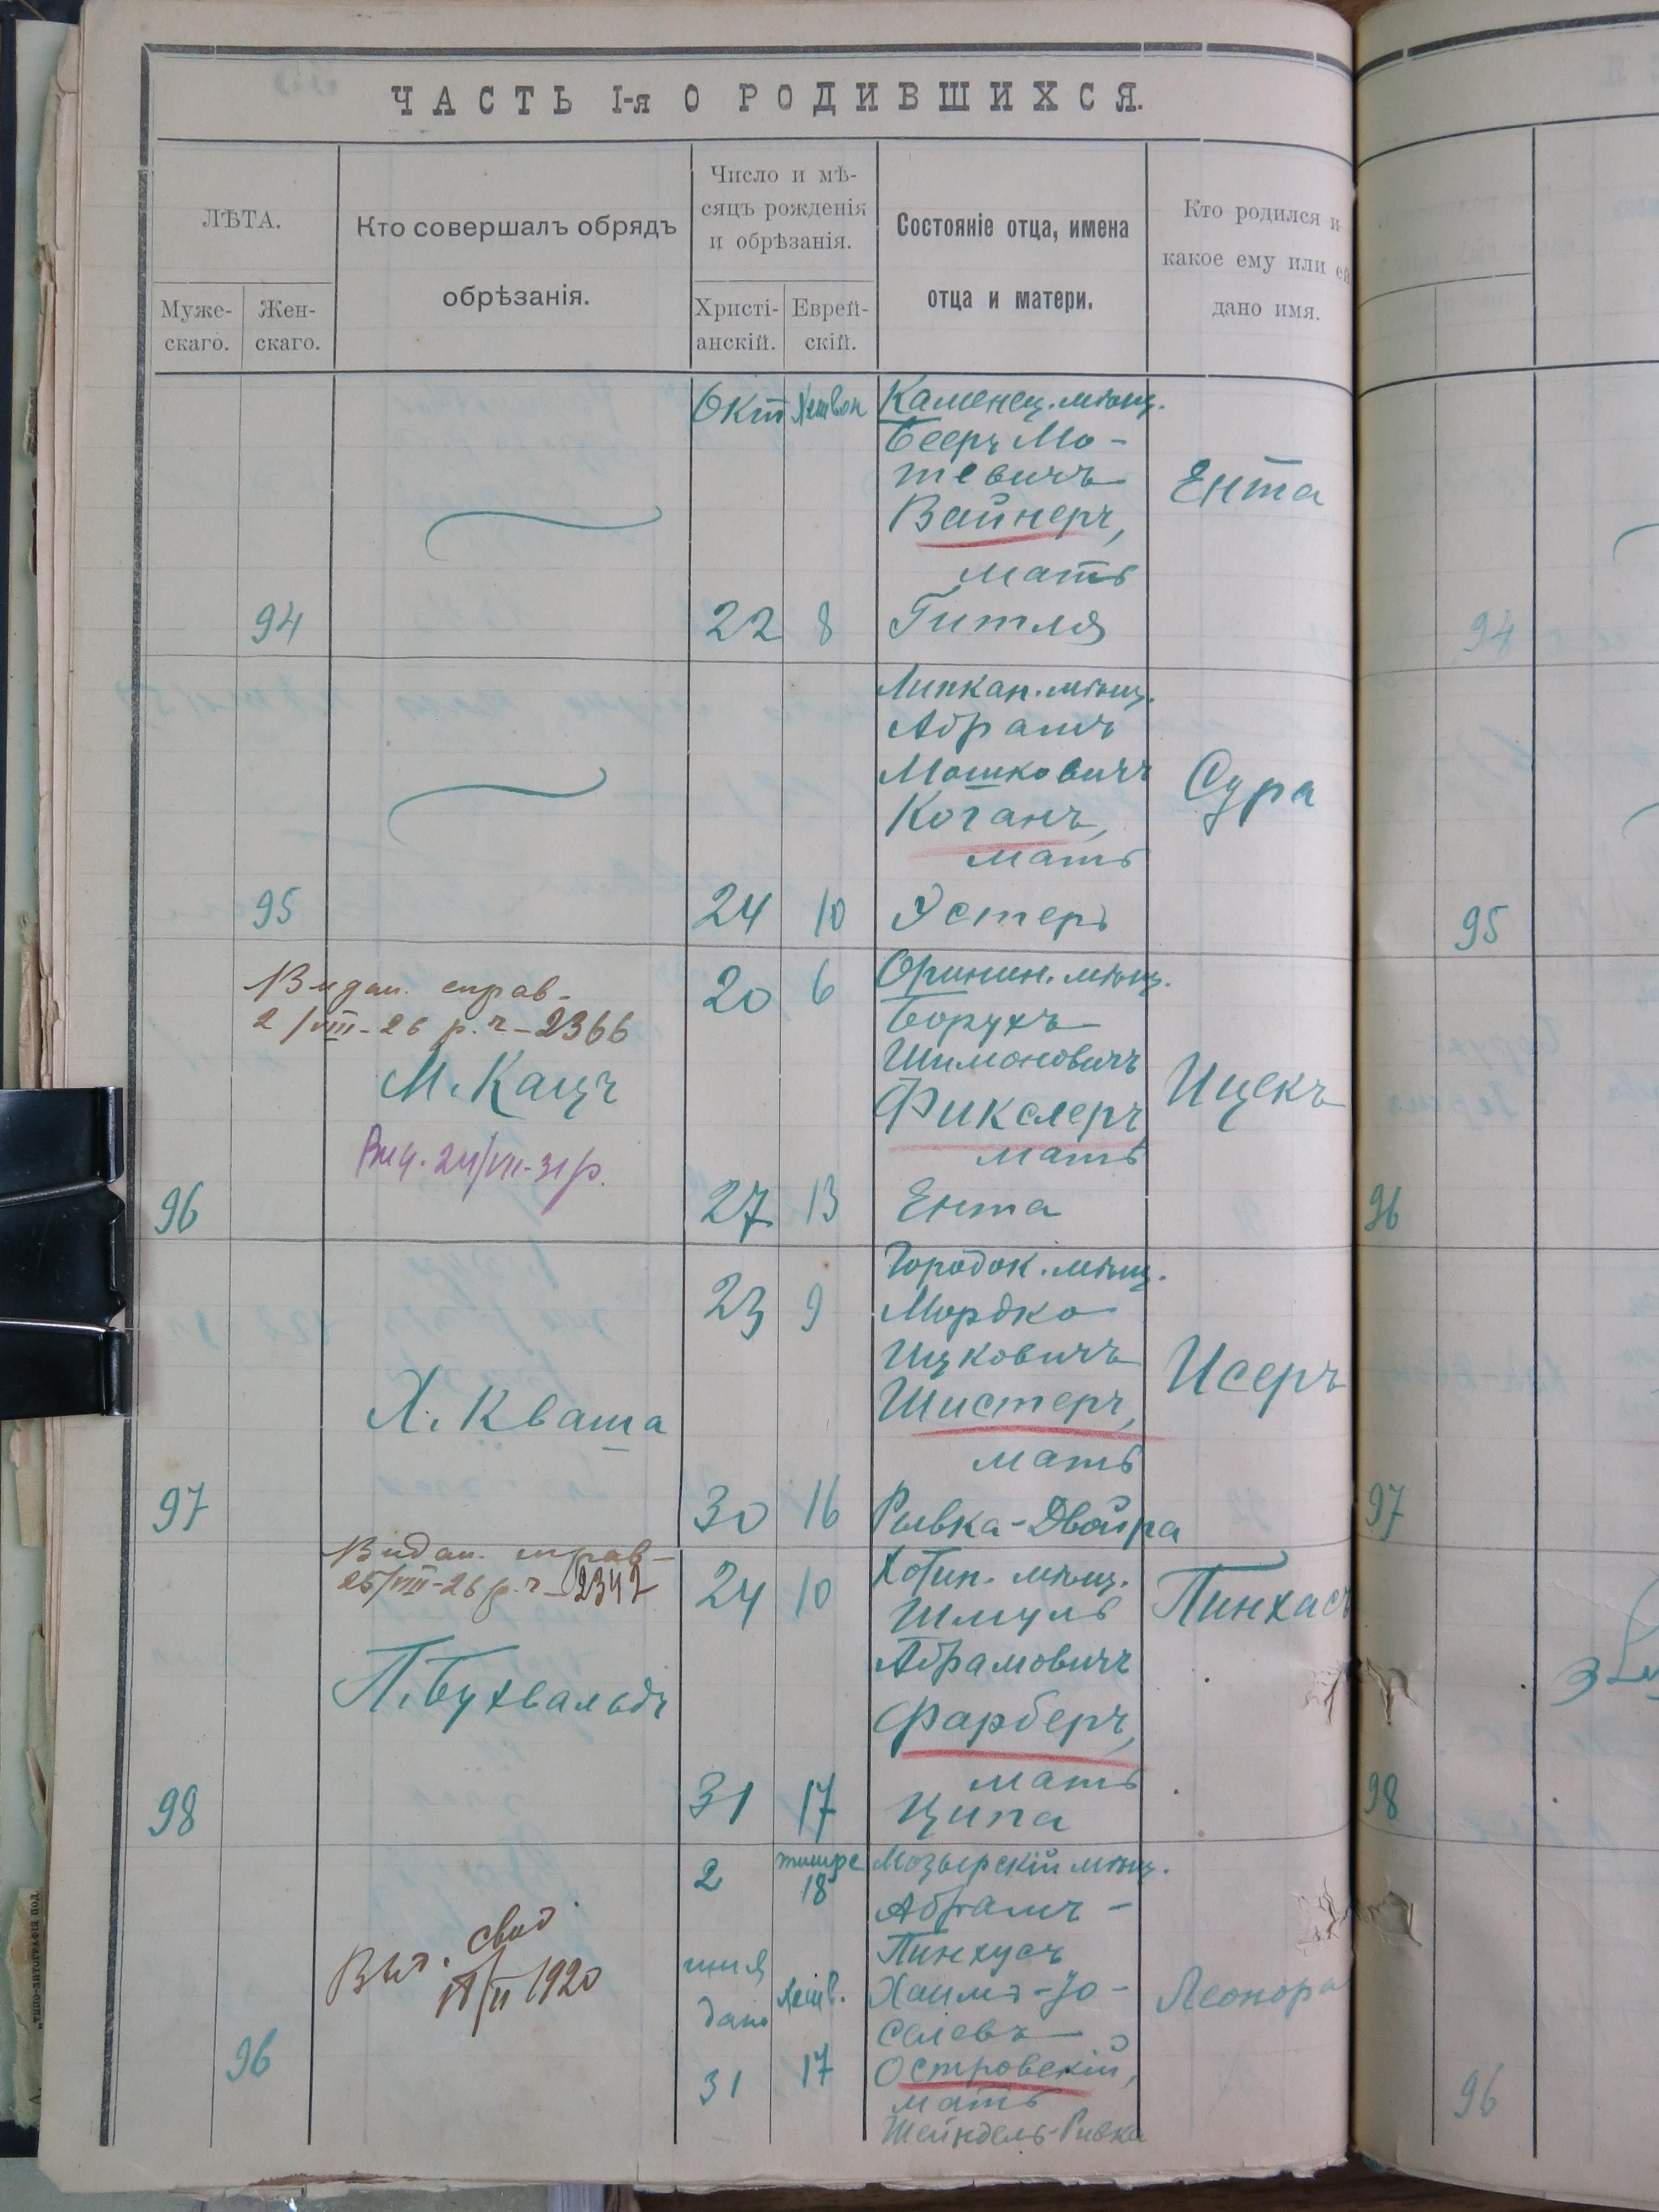 ЧАСТЬ I-я О РОДИВШИХСЯ.
ЛѢТА.
Муже-
скаго.
Жен-
скаго.
Кто совершалъ обрядъ
обрѣзанія.
Число и мѣ-
сяцъ рожденія
и обрѣзанія.
Христі-
анскій.
Еврей-
скій.
Состояніе отца, имена
отца и матери.
Кто родился и
какое ему или ей
дано имя.
Окт Хешвон
Каменец. мѣщ.
Бееръ Мо-
тевичъ
Вайнеръ,
мать
Гитля
Ента
94
22 8
94
Липкан. мѣщ.
Абрамъ
Мошковичъ
Коганъ,
мать
Эстеръ
Сура
95
24 10
95
Видан. справ-
2/VIII-26 р. ч-2366
М. Кацъ
Вид. 24/VII-31 р.
20 6
Оринин. мѣщ.
Борухъ
Шимоновичъ
Фикслеръ,
мать
Ента
Ицекъ
96
27 13
96
23 9
Городок. мѣщ.
Мордко
Ицковичъ
Шистеръ,
мать
Рывка-Двойра
Исеръ
Х. Кваша
97
30 16
97
Видан. справ-
25/VIII-26 р. ч-2342
П. Бухвальдъ
24 10
Хотин. мѣщ.
Шмуль
Абрамовичъ
Фарберъ,
мать
Ципа
Пинхасъ
98
31 17
98
2
тишре
18
имя
дано
Хешв.
31 17
Мозырскій мѣщ.
Абрамъ-
Пинхусъ
Хаимъ-Іо-
селевъ
Островскій,
мать
Шейндель-Ривка
Леонора
Выд. свид.
18/II 1920
96
96